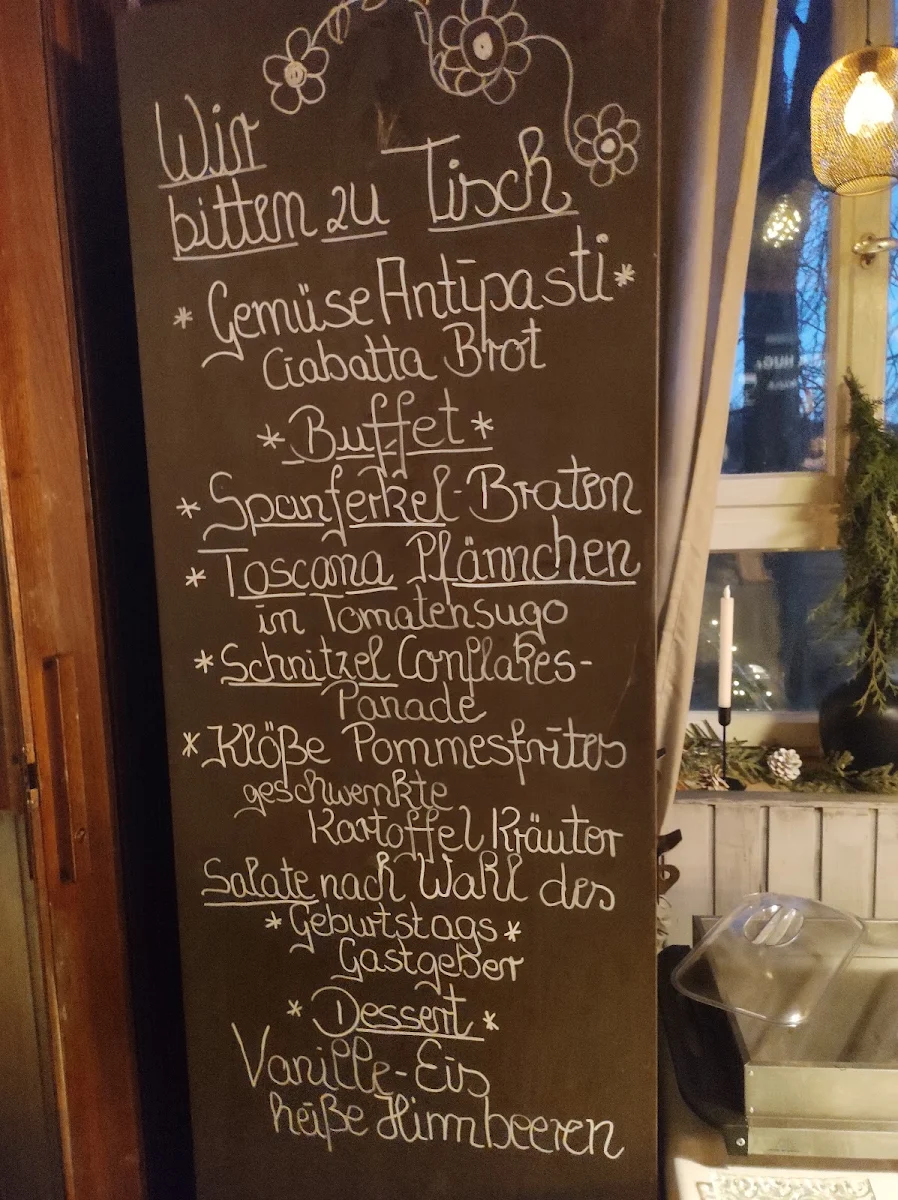 Wir
bitten zu Tisch
* Gemüse Antipasti *
Ciabatta Brot
* Buffet *
* Spanferkel-Braten
* Toscana Pfännchen
in Tomatensugo
* Schnitzel Cornflakes-
Panade
* Klöße Pommesfrites
geschwenkte
Kartoffel Kräuter
Salate nach Wahl des
* Geburtstags *
Gastgeber
* Dessert *
Vanille-Eis
heiße Himbeeren